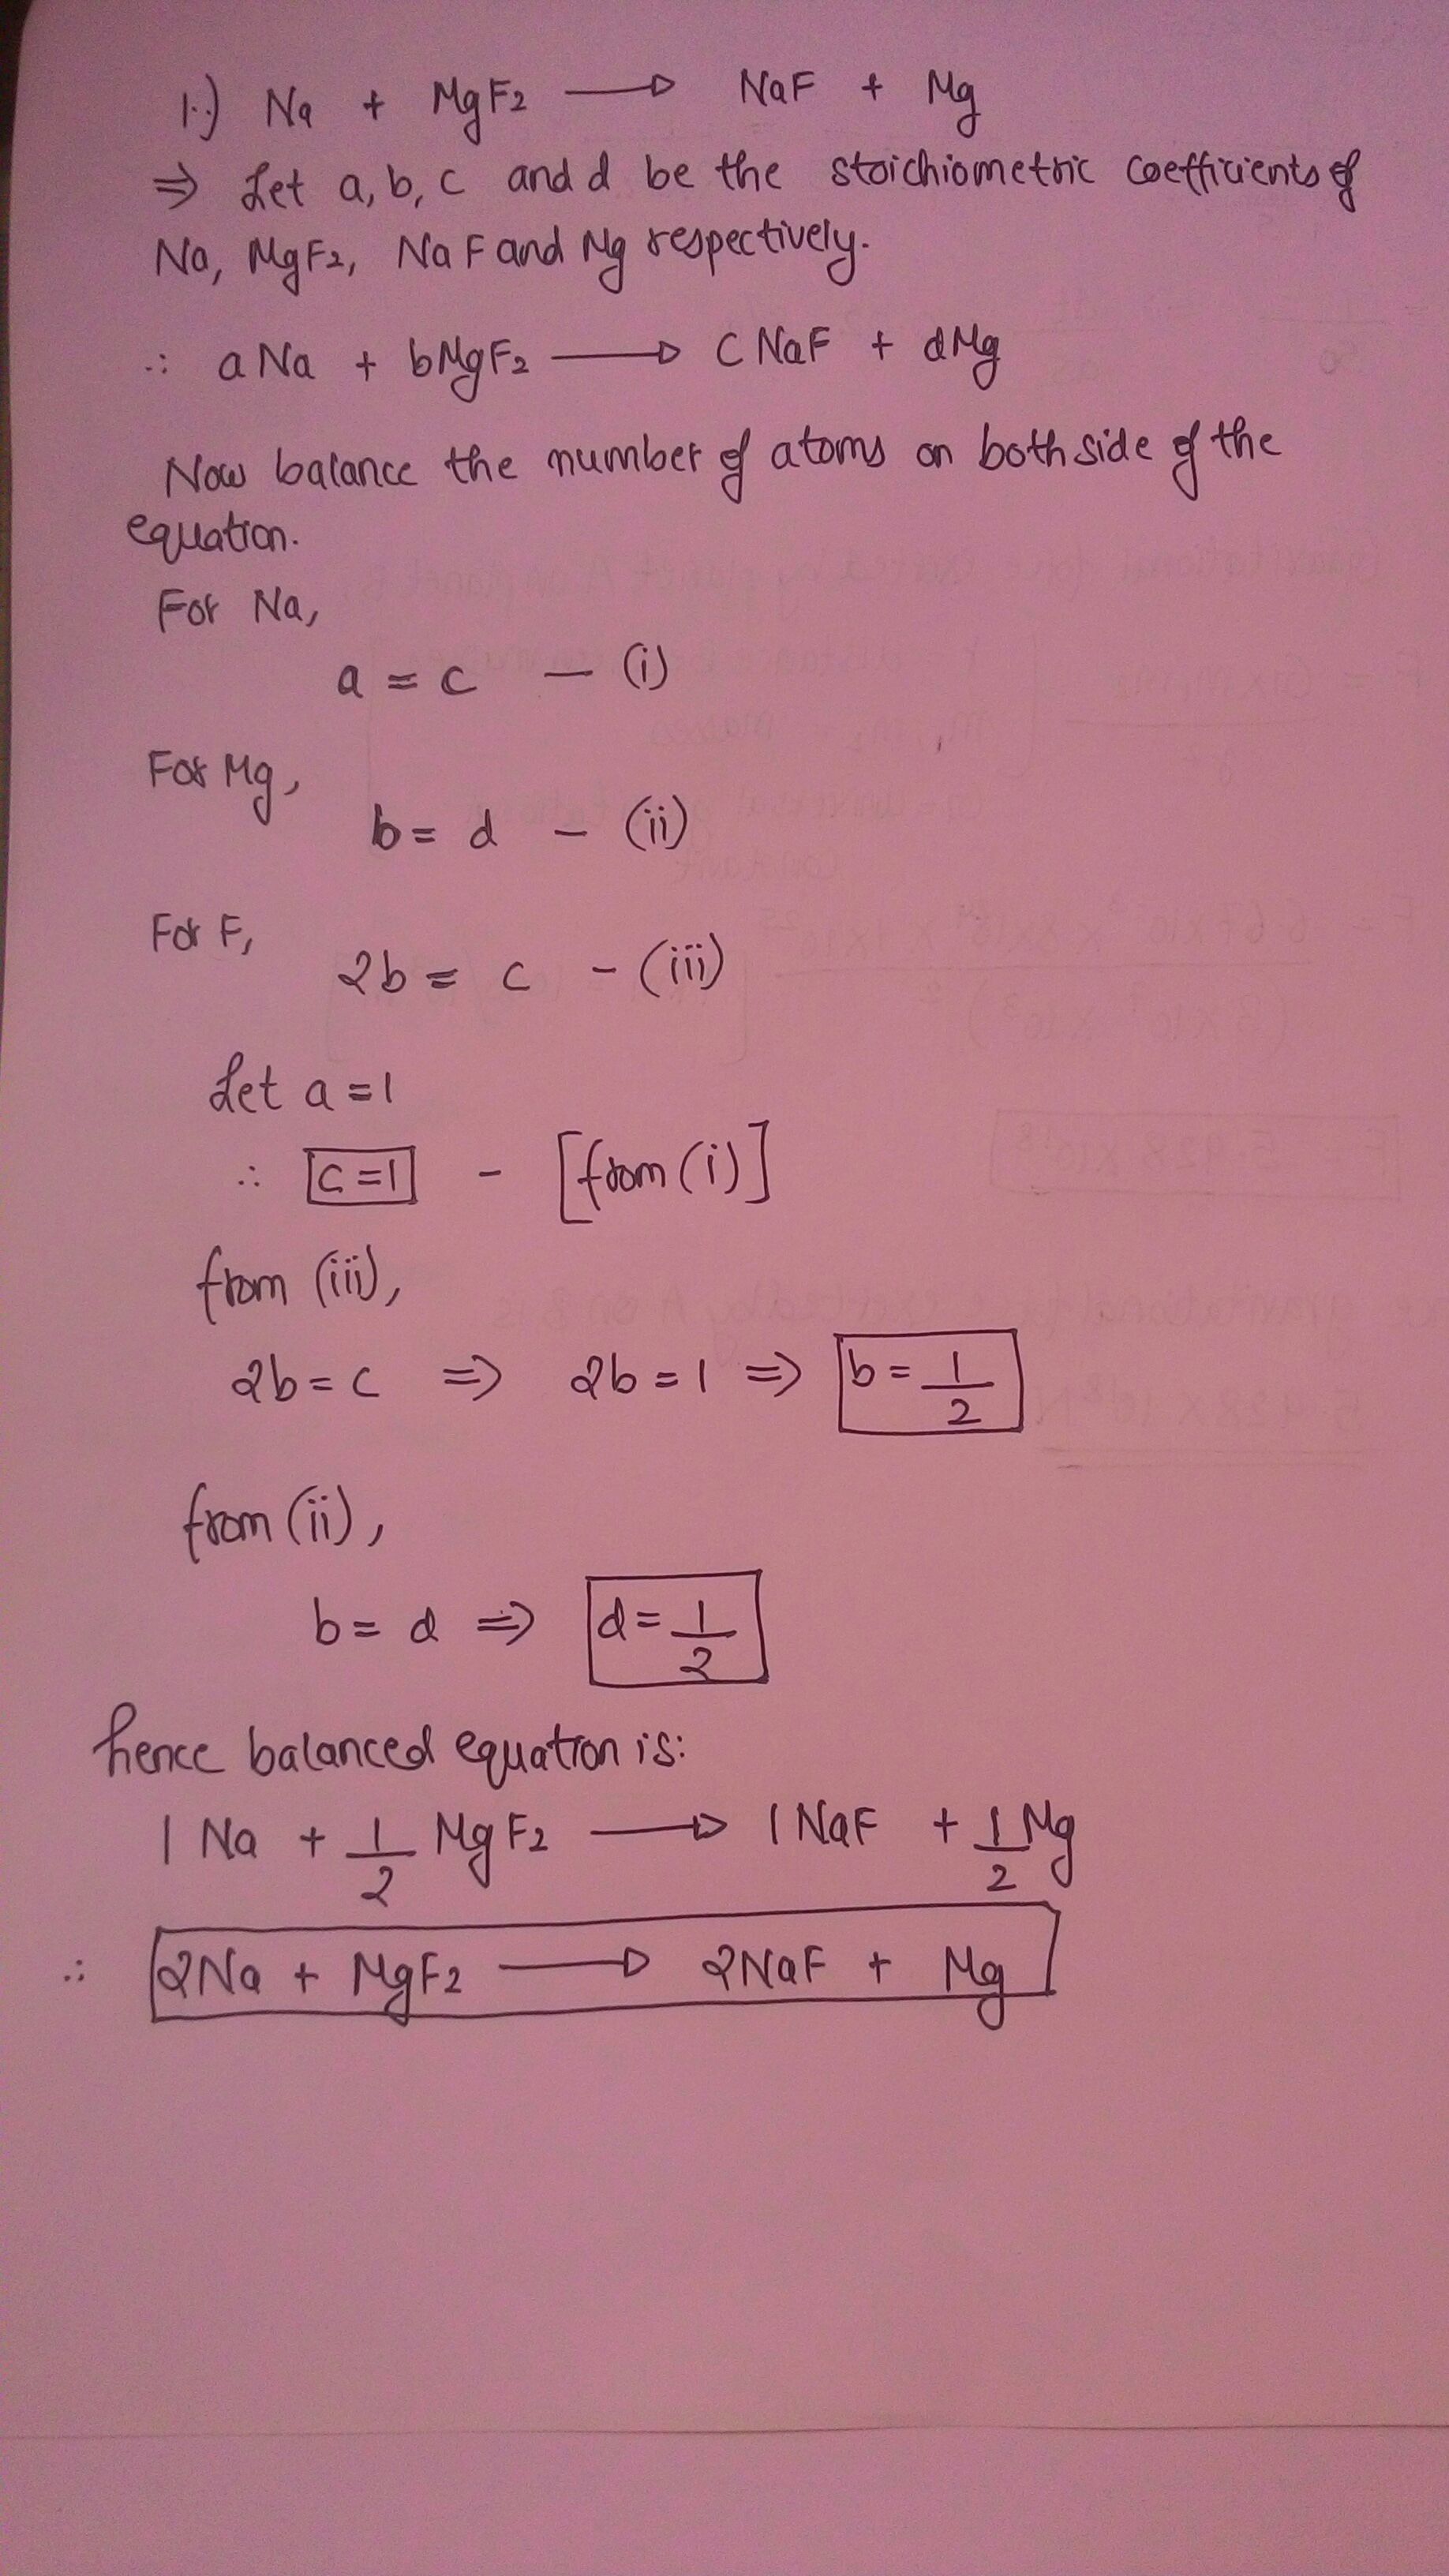 1.) Na + MgF2 → NaF + Mg
⇒ Let a, b, c and d be the stoichiometric coefficients of
Na, MgF2, NaF and Mg respectively.
∴ aNa + bMgF2 → cNaF + dMg
Now balance the number of atoms on both side of the
equation.
For Na,
a = c — (i)
For Mg,
b = d – (ii)
For F,
2b = c – (iii)
Let a = 1
∴ c = 1 – [from (i)]
from (iii),
2b = c ⇒ 2b = 1 ⇒ b = 1/2
from (ii),
b = d ⇒ d = 1/2
hence balanced equation is:
1 Na + 1/2 MgF2 → 1 NaF + 1/2 Mg
∴ 2Na + MgF2 → 2NaF + Mg